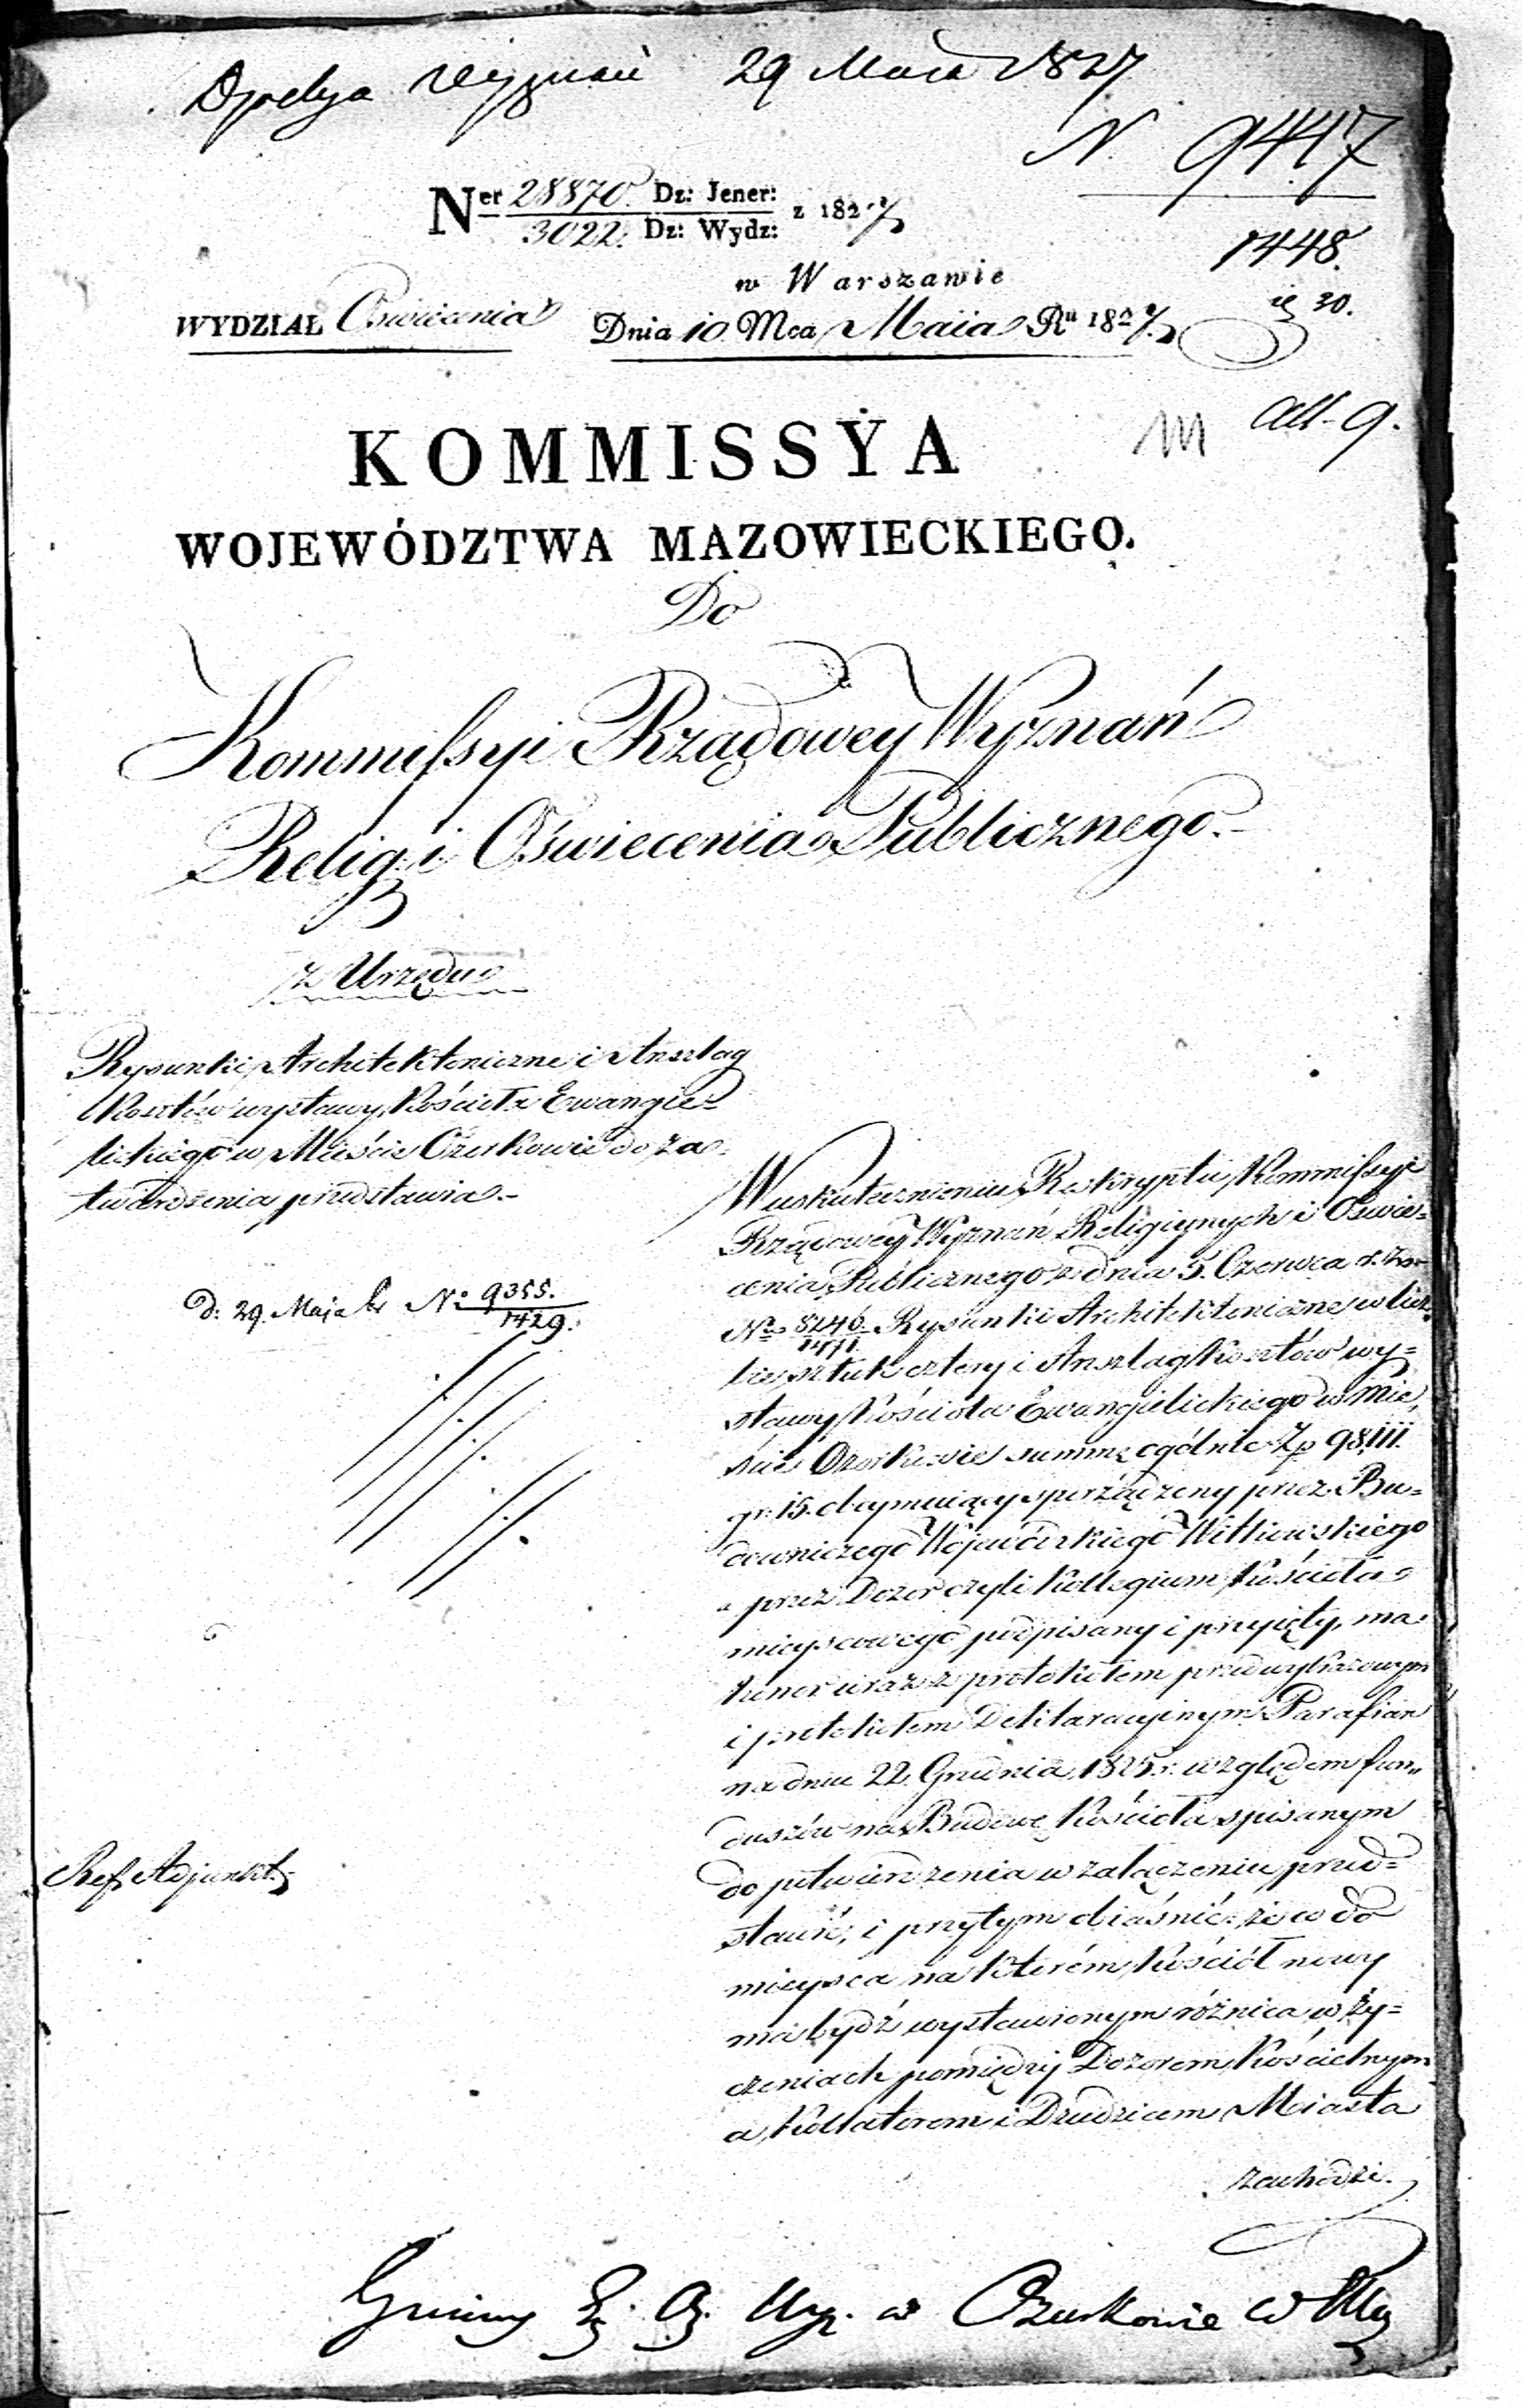 Wyznań 29 Maia 1827
N. 9447
1448.
Ner 28870. Dz: Jener: z 1827
3022. Dz: Wydz:
w Warszawie
WYDZIAŁ Oświecenia Dnia 10 Mca Maia Ru 1827.
all. 9.
KOMMISSYA
WOJEWÓDZTWA MAZOWIECKIEGO.
Do
Kommissyi Rządowey Wyznań
Relig: i Oświecenia Publicznego.
z Urzędu
Rysunki Architektoniczne i Anszlag
kosztów wystawy Kościoła Ewangie=
lickiego w Mieście Ozorkowie do za=
twierdzenia przedstawia.-
d: 29. Maja N° 9355.
1429.
W uskutecznieniu Reskryptu Kommissyi
Rządowey Wyznań Religiynych i Oświe=
cenia Publicznego z dnia 5. Czerwca r. z.
No 8246. Rysunki Architektoniczne w licz=
1171.
bie sztuk cztery i Anszlag kosztów wy=
stawy Kościoła Ewangielickiego w Mie=
ście Ozorkowie summę ogólnie Zp 98,111.
gr: 15. obeymuiący sporządzony przez Bu=
downiczego Wojewódzkiego Witkowskiego
a przez Dozór czyli Kollegium Kościoła
mieyscowego podpisany i przyięty, ma
honor wraz z protokółem
i protokółem Deklaracyinym Parafian
na dniu 22. Grudnia 1825. r. względem fun=
duszów na Budowę Kościoła spisanym
do potwierdzenia w załączeniu przed=
stawić, i przytym obiaśnić: że co do
mieysca na którém Kościół nowy
ma bydź wystawionym różnica w ży=
czeniach pomiędzy Dozorem Kościelnym
a Kollatorem i Dziedzicem Miasta
zachodzi.
Ref. Adjunkt.
Gminy Ew. Aug. Wyz. w Ozorkowie w